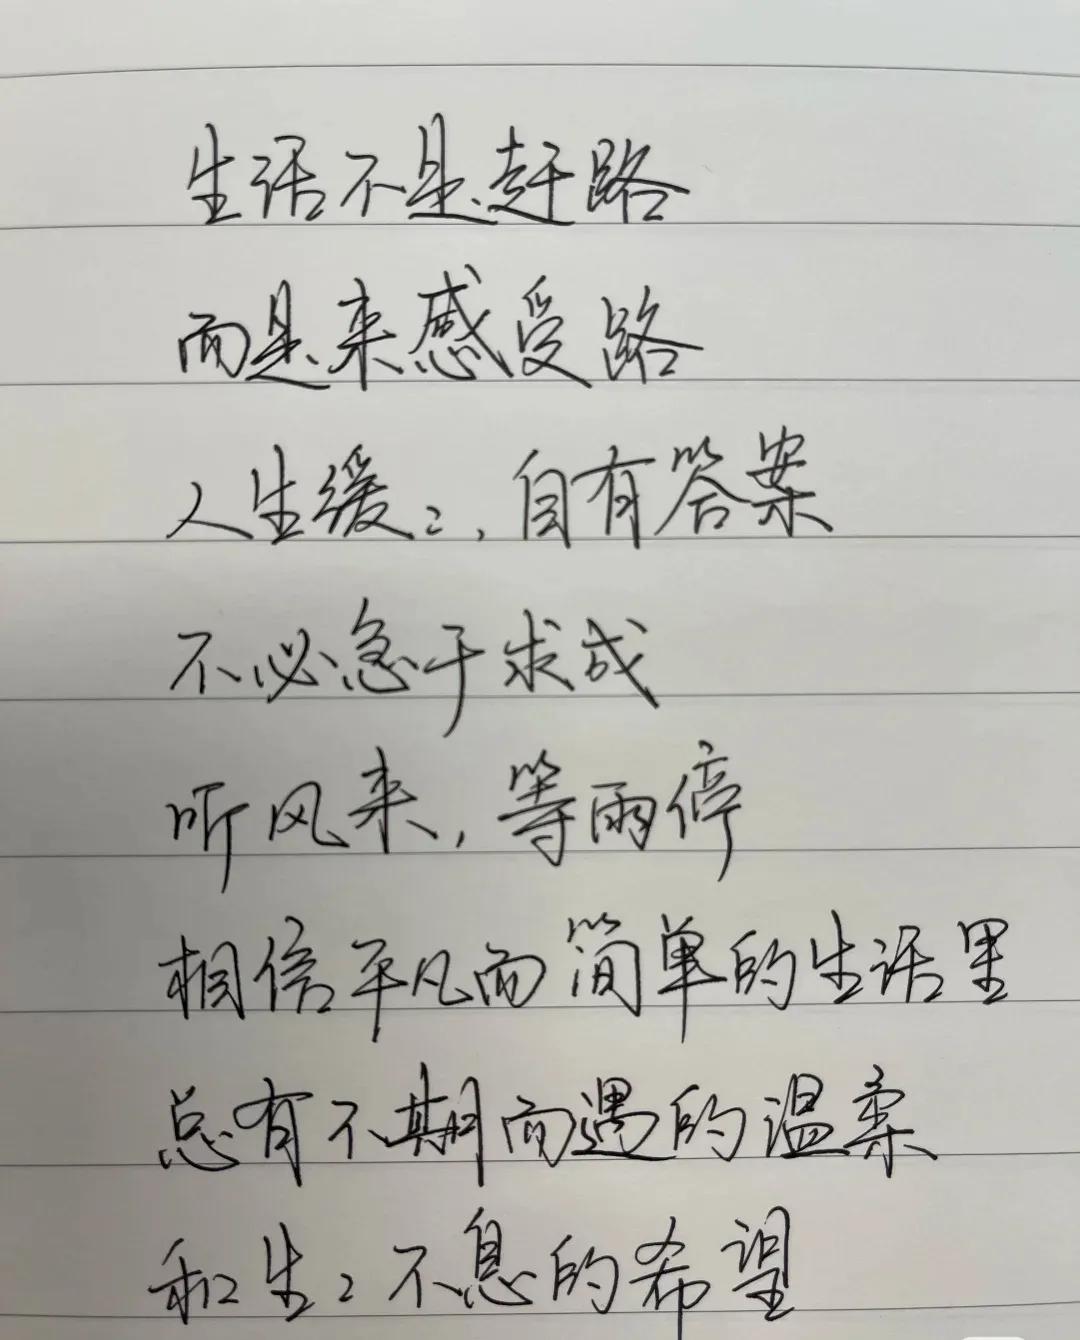 生活不是赶路
而是来感受路
人生缓缓，自有答案
不必急于求成
听风来，等雨停
相信平凡而简单的生活里
总有不期而遇的温柔
和生生不息的希望